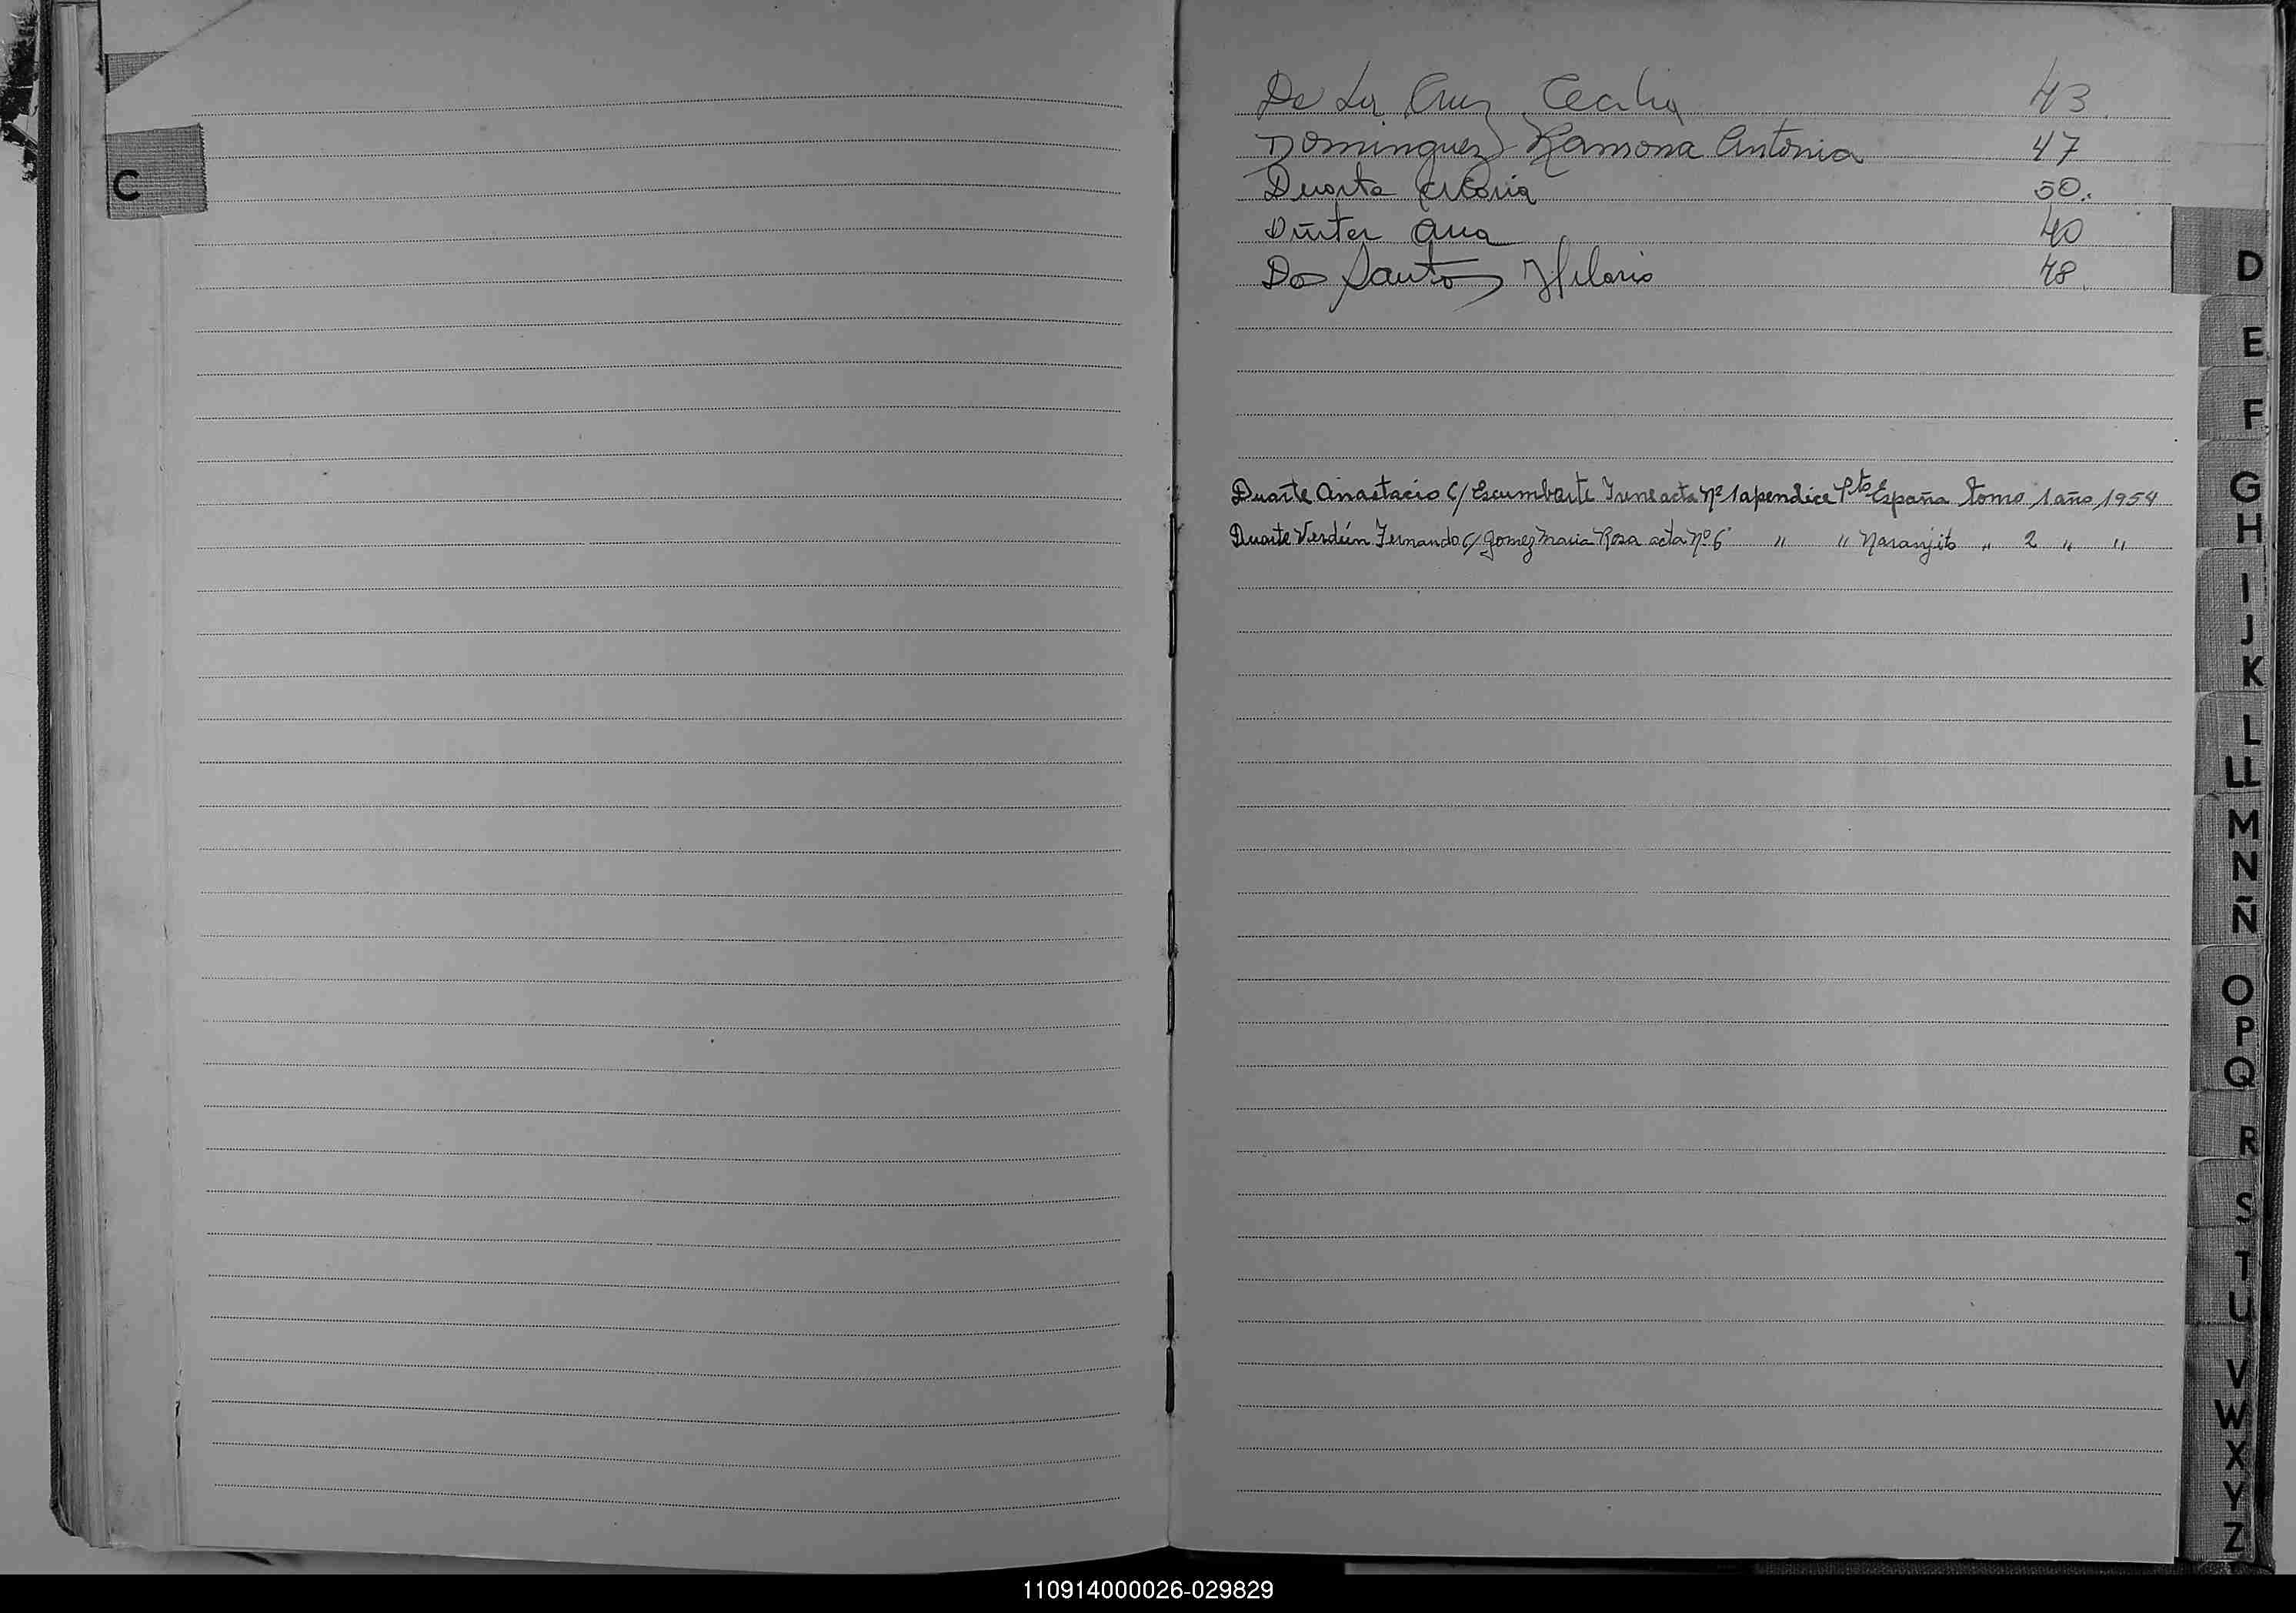 C
De La Cruz Cecilia 43
Dominguez Ramona Antonia 47
Duarte 50.
Ana 40
Dos Santos Hilario 48
Duarte Anastacio c/ Escumbarti Irene acta Nº 1 apendice Pto España tomo 1 año 1954
Duarte Verdún Fernando c/ Gomez Maria Rosa acta Nº 6 " " Naranjito " 2 " "
D
E
F
G
H
I
J
K
L
LL
M
N
Ñ
O
P
Q
R
S
T
U
V
W
X
Y
Z
110914000026-029829